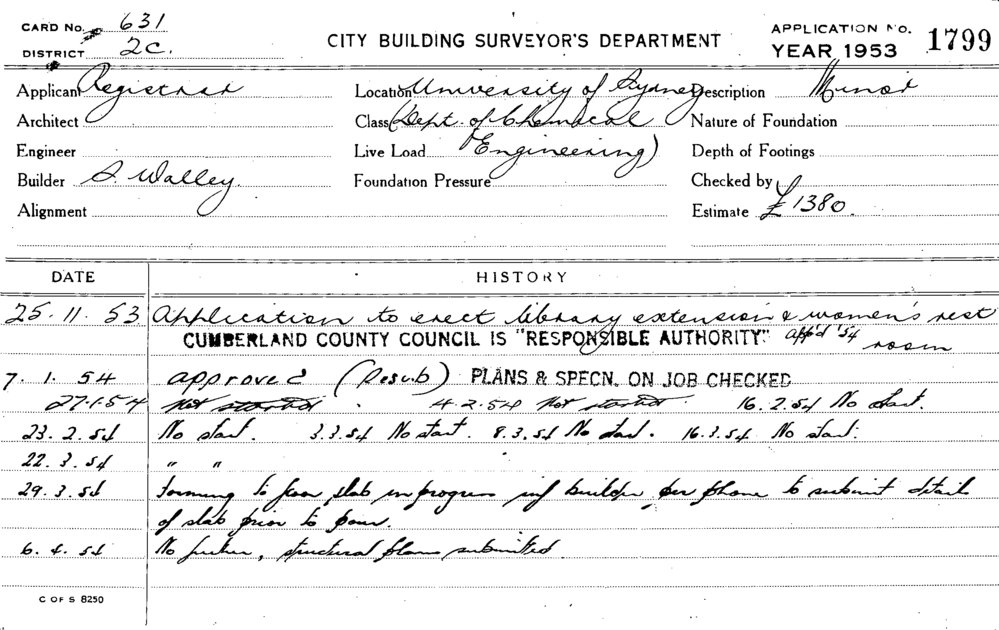 CARD No. 631
DISTRICT 2C.
CITY BUILDING SURVEYOR'S DEPARTMENT
APPLICATION NO.
YEAR 1953 1799
Applicant Registrar
Location University of Sydney
Description Minor
Architect
Class (Dept. of Chemical
Nature of Foundation
Engineer
Live Load Engineering)
Depth of Footings
Builder S. Walley.
Foundation Pressure
Checked by
Alignment
Estimate £1380.
DATE HISTORY
25.11.53 Application to erect library extension & women's rest
CUMBERLAND COUNTY COUNCIL IS "RESPONSIBLE AUTHORITY." App'd '54 room
7.1.54 approved (Resub) PLANS & SPECN. ON JOB CHECKED
27.1.54 Not started. 4.2.54 Not started. 16.2.54 No start.
23.2.54 No start. 3.3.54 No start. 8.3.54 No start. 16.3.54 No start.
22.3.54 " "
29.3.54 Forming to floor slab in progress inf builder per phone to submit details
of slab prior to pour.
6.4.54 No further, structural plans submitted.
C OF S 8250